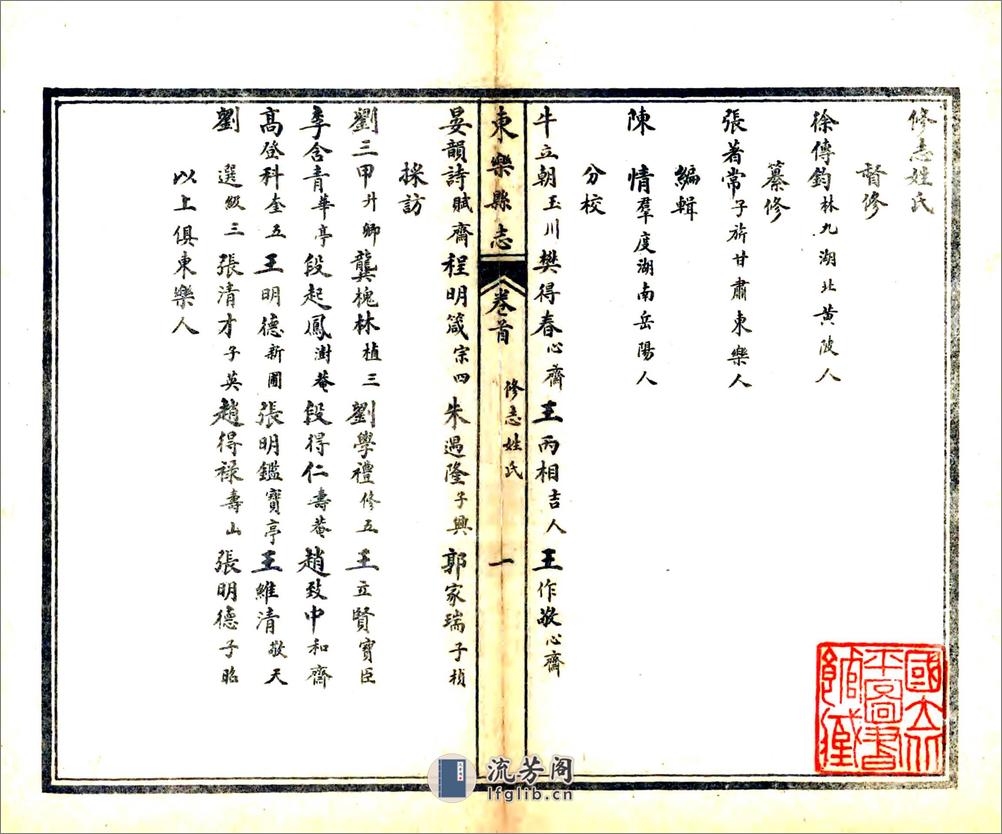 修志姓氏
督修
徐傳鈞林九湖北黃陂人
纂修
張著常子旂甘肅東樂人
編輯
陳 情羣度湖南岳陽人
分校
牛立朝玉川樊得春心齋王丙相吉人王作敬心齋
東樂縣志 卷首 修志姓氏 一
晏韻詩賦齋程明箴宗四朱遇隆子興郭家瑞子楨
採訪
劉三甲升卿龔槐林植三劉學禮修五王立賢寶臣
李含青華亭段起鳳澍菴段得仁壽菴趙致中和齋
高登科奎五王明德新圃張明鑑寶亭王維清敬天
劉 選級三張清才子英趙得祿壽山張明德子昭
以上俱東樂人
國立北平圖書館藏
流芳阁
lfglib.cn